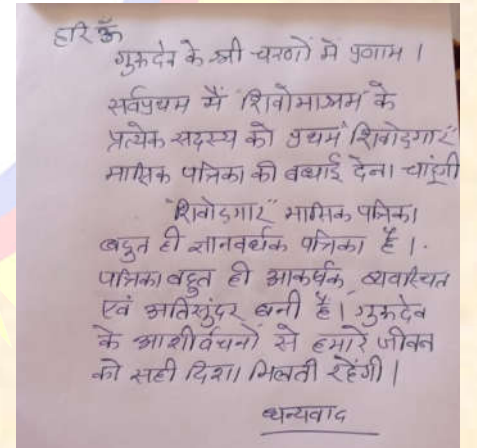 हरि ॐ
गुरूदेव के श्री चरणों में प्रणाम ।
सर्वप्रथम मैं "शिवोमाश्रम" के
प्रत्येक सदस्य को प्रथम "शिवोड्गार"
मासिक पत्रिका की बधाई देना चाहूंगी
"शिवोड्गार" मासिक पत्रिका
बहुत ही ज्ञानवर्धक पत्रिका है ।
पत्रिका बहुत ही आकर्षक, व्यवस्थित
एवं अतिसुंदर बनी है । गुरूदेव
के आशीर्वचनों से हमारे जीवन
को सही दिशा मिलती रहेंगी ।
धन्यवाद